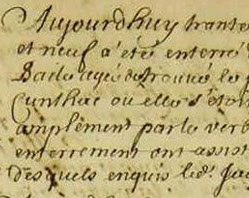 Aujourdhuy trante
et neuf a été enterré
trouvé le
Cunlhac ou elle s'étoi
amplement par le verb
enterrement ont assist
desquels enquis led. Ja